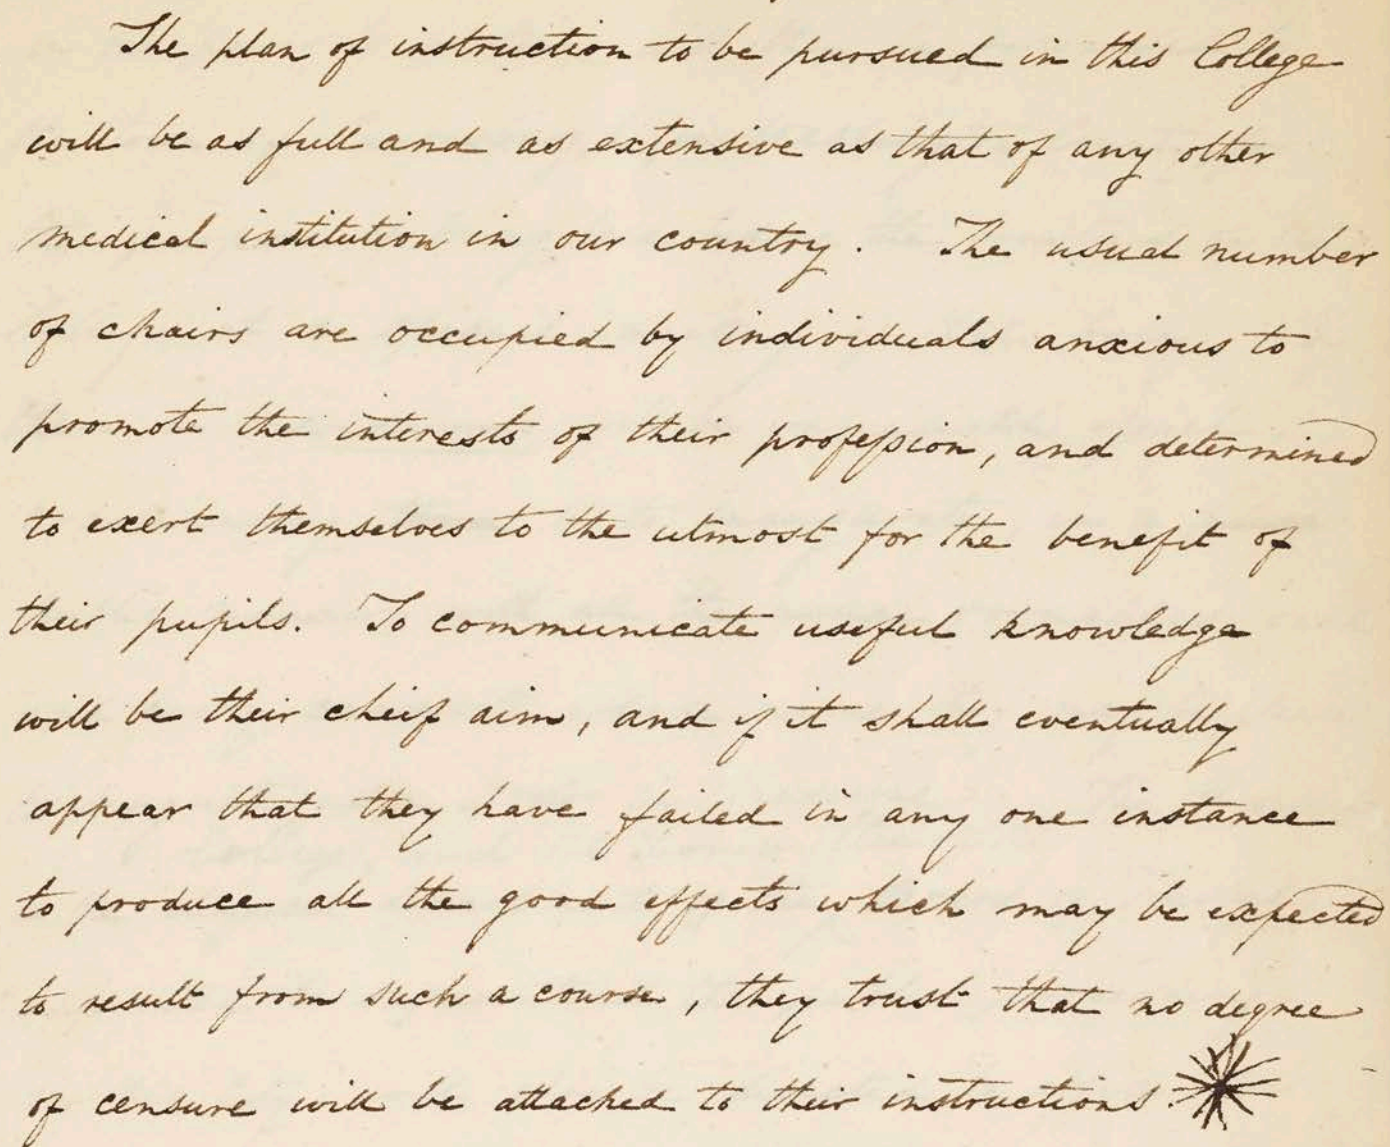 The plan of instruction to be pursued in this College
will be as full and as extensive as that of any other
medical institution in our country. The usual number
of chairs are occupied by individuals anxious to
promote the interests of their profeſsion, and determined
to exert themselves to the utmost for the benefit of
their pupils. To communicate useful knowledge
will be their cheif aim, and if it shall eventually
appear that they have failed in any one instance
to produce all the good effects which may be expected
to result from such a course, they trust that no degree
of censure will be attached to their instructions.